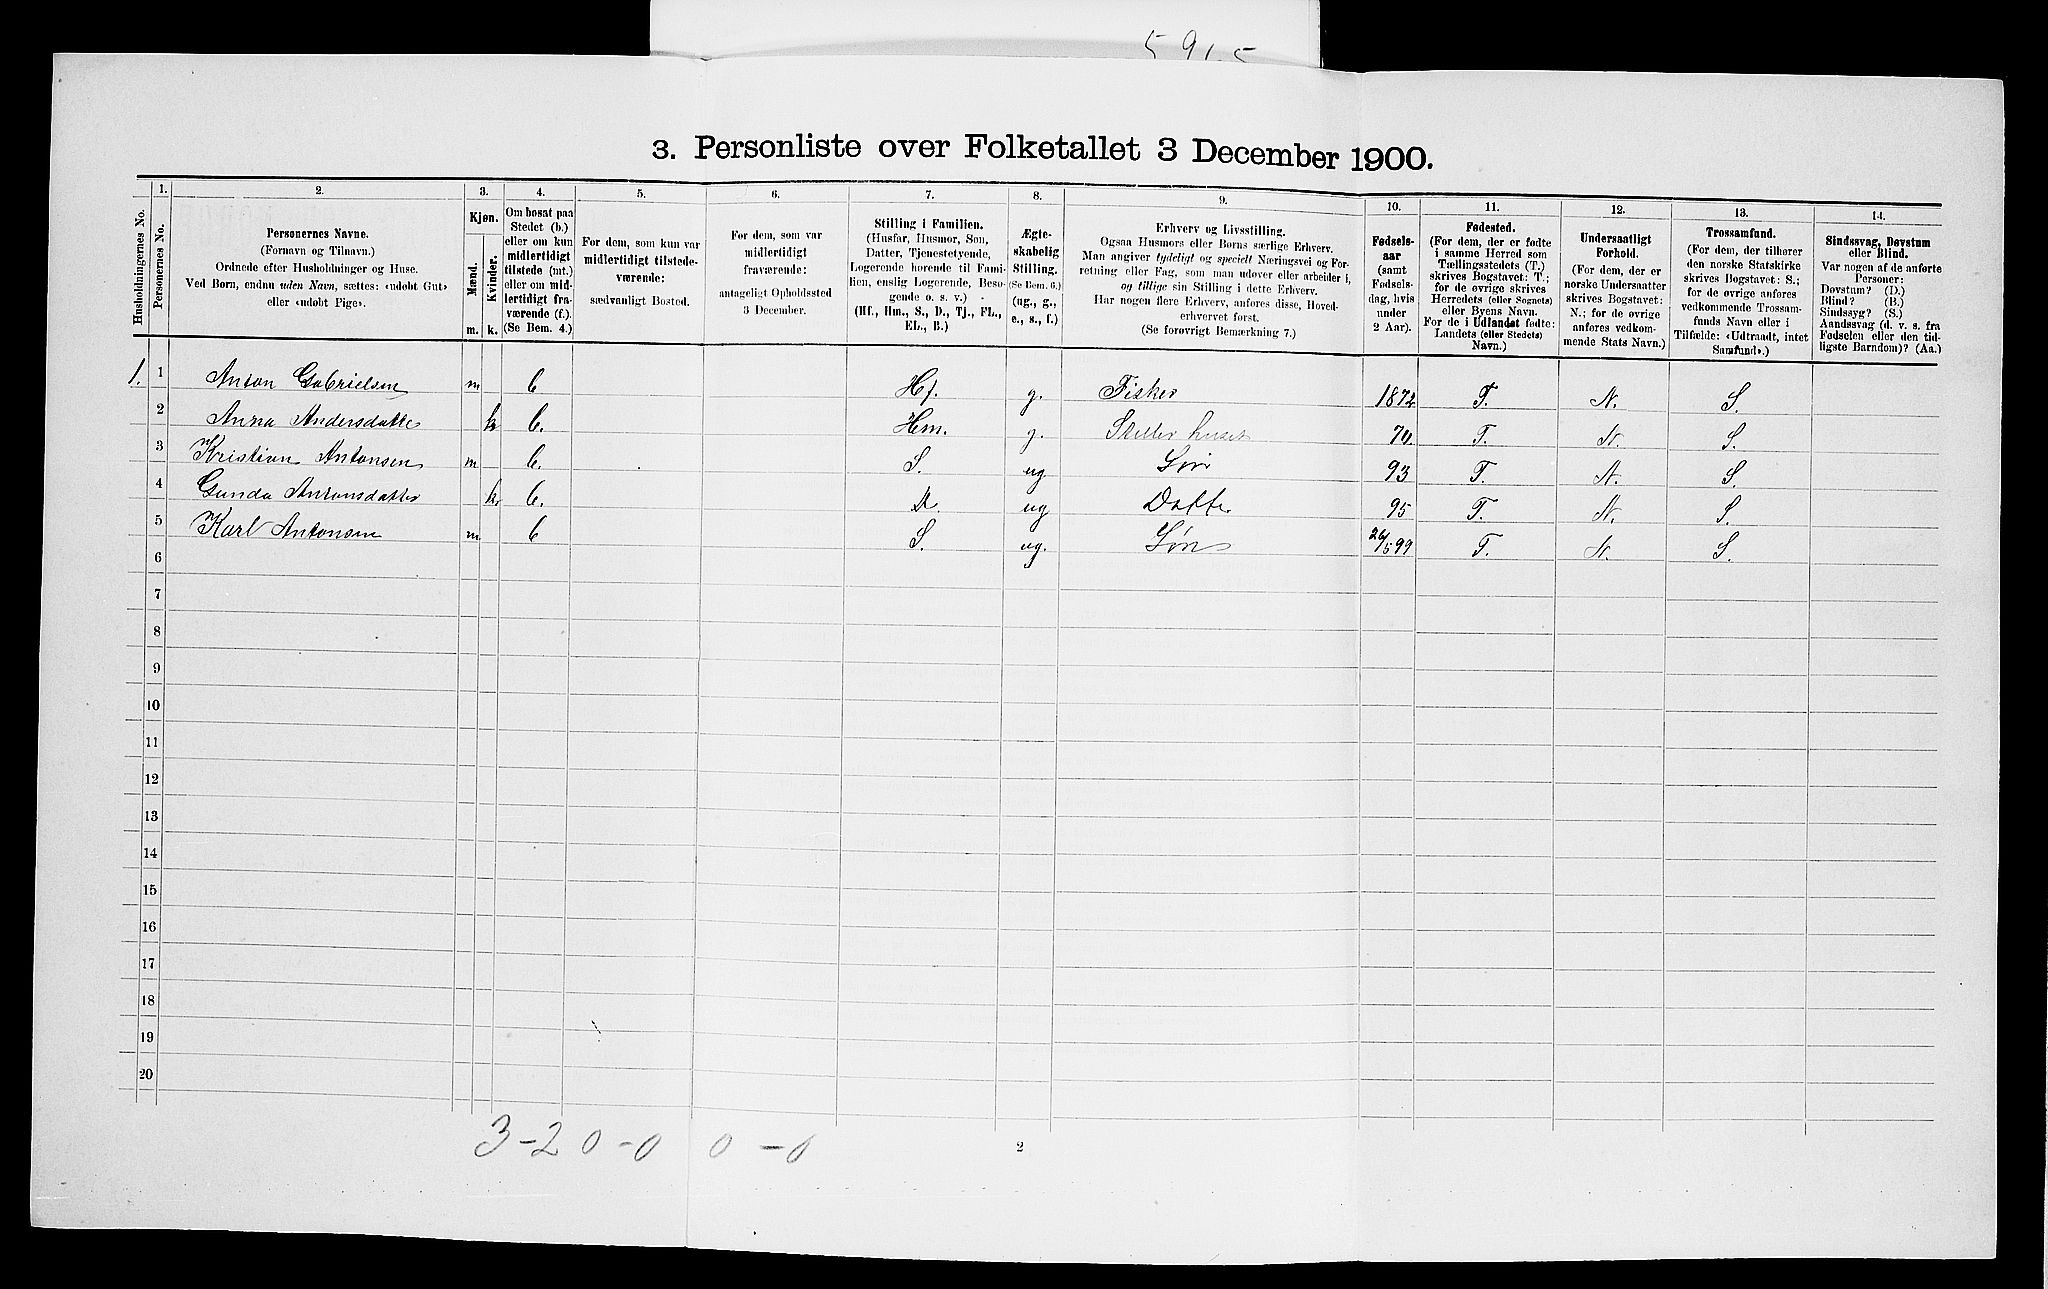 5915
3. Personliste over Folketallet 3 December 1900.
Husholdningernes No.
1.
Personernes No.
2.
Personernes Navne.
(Fornavn og Tilnavn.)
Ordnede efter Husholdninger og Huse.
Ved Børn, endnu uden Navn, sættes: «udøbt Gut»
eller «udøbt Pige».
3.
Kjøn.
Mænd.
Kvinder.
m. k.
4.
Om bosat paa
Stedet (b.)
eller om kun
midlertidigt
tilstede (mt.)
eller om mid-
lertidigt fra-
værende (f.).
(Se Bem. 4.)
5.
For dem, som kun var
midlertidigt tilstede-
værende:
sædvanligt Bosted.
6.
For dem, som var
midlertidigt
fraværende:
antageligt Opholdssted
3 December.
7.
Stilling i Familien.
(Husfar, Husmor, Søn,
Datter, Tjenestetyende,
Logerende hørende til Fami-
lien, enslig Logerende, Besø-
gende o. s. v.)
(Hf., Hm., S., D., Tj., FL.,
EL., B.)
8.
Ægte-
skabelig
Stilling.
(Se Bem. 6.)
(ug., g.,
e., s., f.)
9.
Erhverv og Livsstilling.
Ogsaa Husmors eller Børns særlige Erhverv.
Man angiver tydeligt og specielt Næringsvei og For-
retning eller Fag, som man udøver eller arbeider i,
og tillige sin Stilling i dette Erhverv.
Har nogen flere Erhverv, anføres disse, Hoved-
erhvervet først.
(Se forøvrigt Bemærkning 7.)
10.
Fødsels-
aar
(samt
Fødsels-
dag, hvis
under
2 Aar).
11.
Fødested.
(For dem, der er fødte
i samme Herred som
Tællingsstedets (T.)
skrives Bogstavet: T.;
for de øvrige skrives
Herredets (eller Sognets)
eller Byens Navn.
For de i Udlandet fødte:
Landets (eller Stedets)
Navn.)
12.
Undersaatligt
Forhold.
(For dem, der er
norske Undersaatter
skrives Bogstavet:
N.; for de øvrige
anføres vedkom-
mende Stats Navn.)
13.
Trossamfund.
(For dem, der tilhører
den norske Statskirke
skrives Bogstavet: S.;
for de øvrige anføres
vedkommende Trossam-
funds Navn eller i
Tilfælde: «Udtraadt, intet
Samfund».)
14.
Sindssvag, Døvstum
eller Blind.
Var nogen af de anførte
Personer:
Døvstum? (D.)
Blind? (B.)
Sindssyg? (S.)
Aandssvag (d. v. s. fra
Fødselen eller den tid-
ligste Barndom)? (Aa.)
1. 1 Anton Gabrielsen m b Hf. g. Fisker 1872 T. N. S.
2 Anna Andersdatte k b. Hm. g. Steller huset 70 T. N. S.
3 Kristian Antonsen m b. S. ug Søn 93 T. N. S.
4 Gunda Antonsdatter k b. D. ug Datte 95 T. N. S.
5 Karl Antonsen m b S. ug. Søn 26/5 99 T. N. S.
6
7
8
9
10
11
12
13
14
15
16
17
18
19
20
3-2 0-0 0-0
2